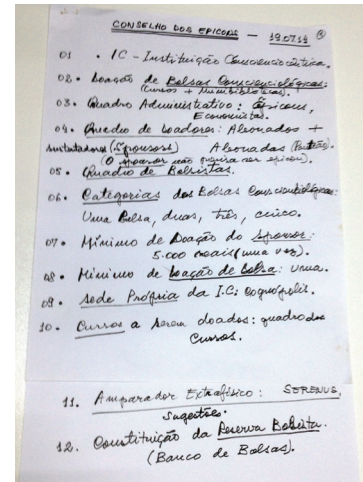 CONSELHO DOS EPICONS — 19.07.14
01 • IC - Instituição Conscienciocêntrica.
02 • Doação de Bolsas Conscienciológicas:
(Cursos + Minibibliotecas).
03 • Quadro Administrativo: Epicons,
Economistas.
04 • Quadro de Doadores: Abonados +
(Sponsors) Abonadas (Patrão).
(O sponsor não precisa ser epicon).
05 • Quadro de Bolsistas.
06 • Categorias das Bolsas Conscienciológicas:
Uma Bolsa, duas, três, cinco.
07 • Mínimo de Doação do Sponsor:
5.000 reais (uma vez).
08 • Mínimo de Doação de Bolsa: uma.
09 • Sede Própria da I.C: Cognópolis.
10 • Cursos a serem doados: quadro dos
Cursos.
11. Amparador Extrafísico: SERENUS,
Sugestões.
12. Constituição da Reserva Bolsista.
(Banco de Bolsas).